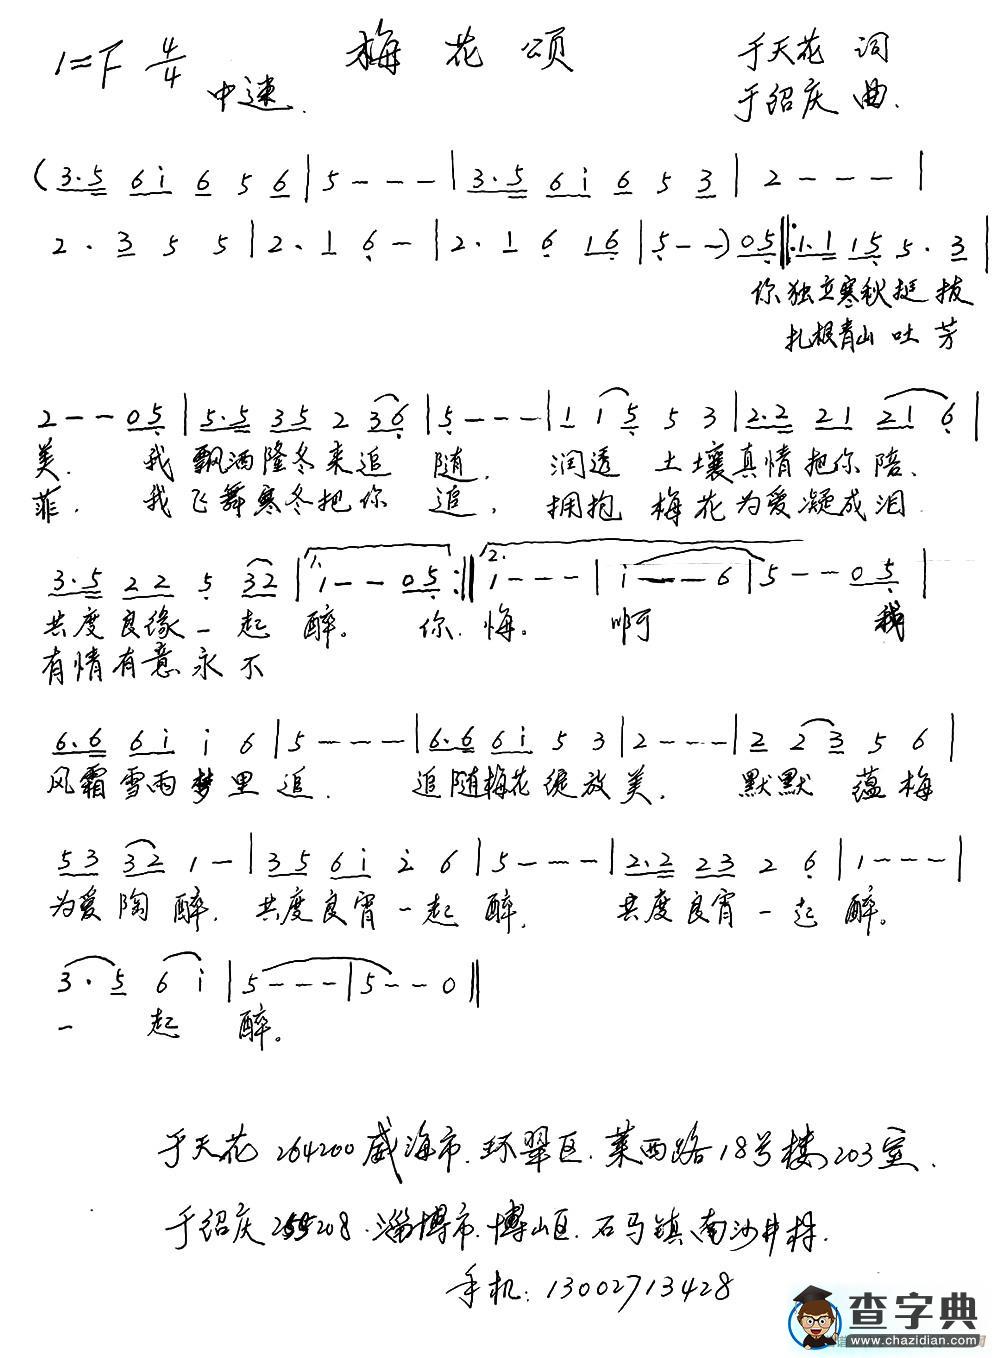 1=F 4/4 梅花颂 于天花 词
中速. 于绍庆 曲.
(3·5 6i 6 5 6 | 5 - - - | 3·5 6i 6 5 3 | 2 - - - |
2· 3 5 5 | 2· 1 6 - | 2· 1 6 16 | 5 - -) 05 ‖: 1·1 15 5· 3 |
你独立寒秋挺拔
扎根青山吐芳
2 - - 05 | 5·5 35 2 36 | 5 - - - | 1 15 5 3 | 2·2 21 21 6 |
美. 我飘洒隆冬来追随. 润透土壤真情把你陪.
菲. 我飞舞寒冬把你追, 拥抱梅花为爱凝成泪
3·5 22 5 32 | 1. 1 - - 05 :‖ 2. 1 - - - | i - - 6 | 5 - - 05 |
共度良缘一起醉。你. 悔。啊 我
有情有意永不
6·6 6i i 6 | 5 - - - | 6·6 6i 5 3 | 2 - - - | 2 23 5 6 |
风霜雪雨梦里追. 追随梅花绽放美. 默默蕴梅
53 32 1 - | 35 6i i 6 | 5 - - - | 2·2 23 2 6 | 1 - - - |
为爱陶醉. 共度良宵一起醉. 共度良宵一起醉。
3· 5 6 i | 5 - - - | 5 - - 0 ‖
一起醉。
于天花 264200 威海市. 环翠区. 莱西路18号楼203室.
于绍庆 255208. 淄博市. 博山区. 石马镇. 南沙井村.
手机: 13002713428
查字典
www.chazidian.com